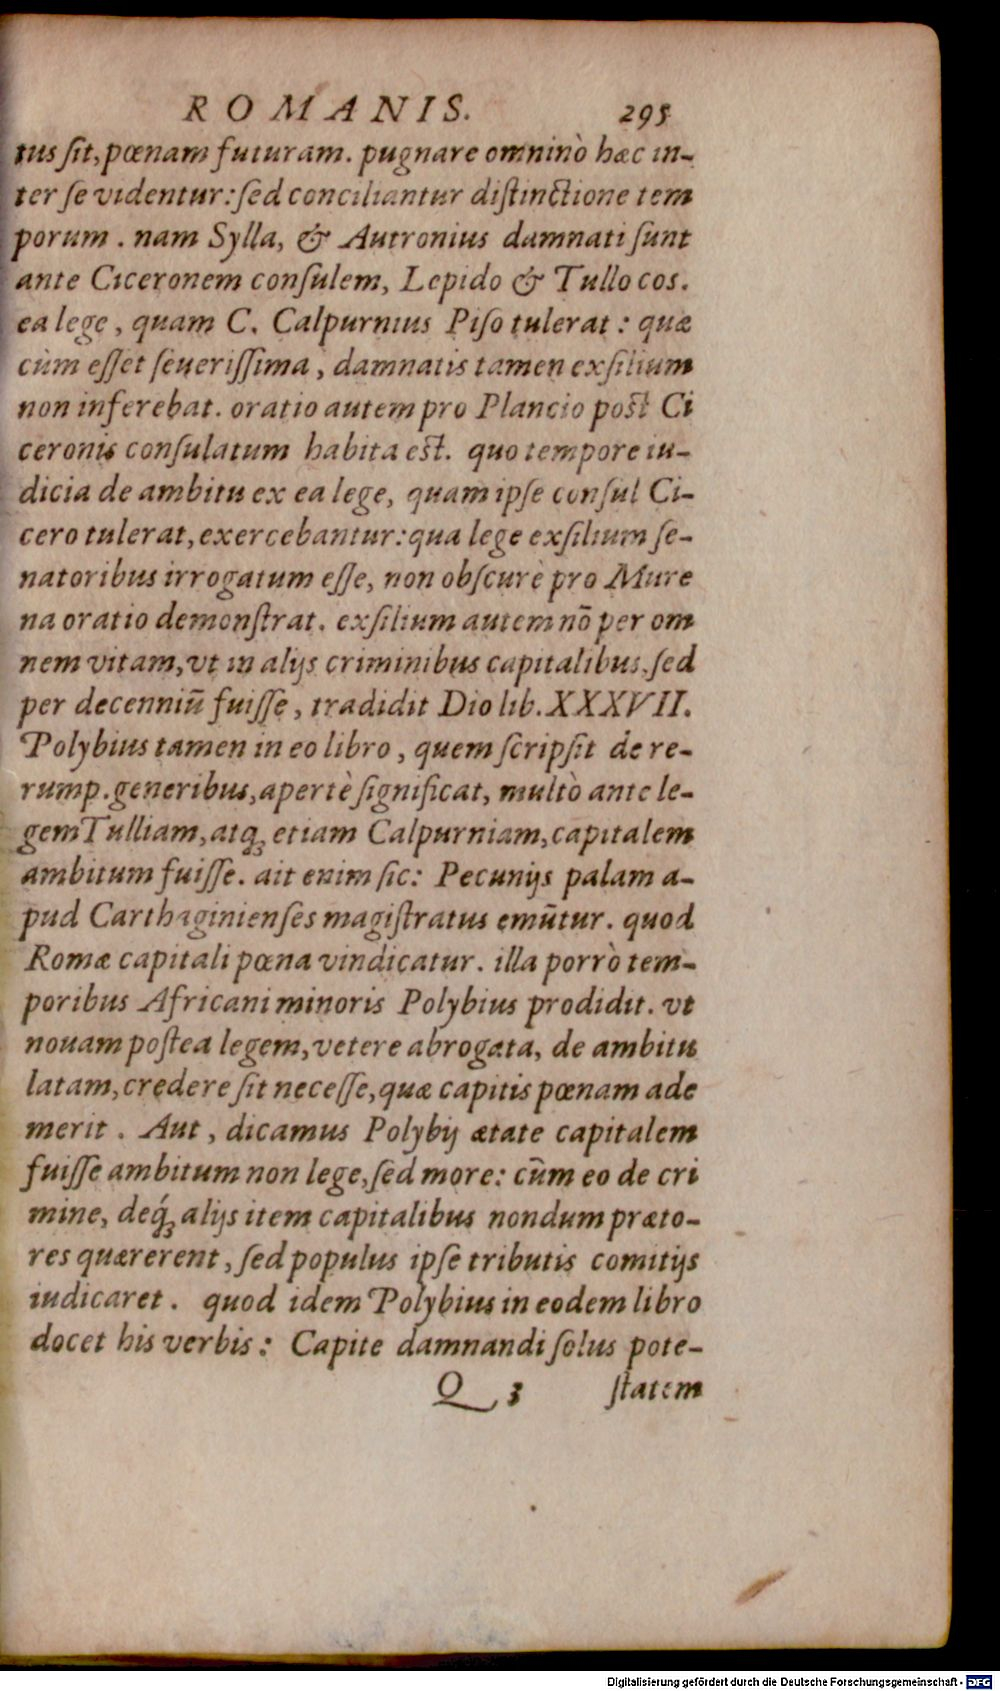 ROMANIS. 295
tus sit, pœnam futuram. pugnare omninò hæc in-
ter se videntur: sed conciliantur distinctione tem
porum. nam Sylla, & Autronius damnati sunt
ante Ciceronem consulem, Lepido & Tullo cos.
ea lege, quam C. Calpurnius Piso tulerat: quæ
cùm esset seuerissima, damnatis tamen exsilium
non inferebat. oratio autem pro Plancio post Ci
ceronis consulatum habita est. quo tempore iu-
dicia de ambitu ex ea lege, quam ipse consul Ci-
cero tulerat, exercebantur: qua lege exsilium se-
natoribus irrogatum esse, non obscurè pro Mure
na oratio demonstrat. exsilium autem nō per om
nem vitam, vt in alijs criminibus capitalibus, sed
per decenniū fuisse, tradidit Dio lib. XXXVII.
Polybius tamen in eo libro, quem scripsit de re-
rump. generibus, apertè significat, multò ante le-
gem Tulliam, atq; etiam Calpurniam, capitalem
ambitum fuisse. ait enim sic: Pecunijs palam a-
pud Carthaginienses magistratus emūtur. quod
Romæ capitali pœna vindicatur. illa porrò tem-
poribus Africani minoris Polybius prodidit. vt
nouam postea legem, vetere abrogata, de ambitu
latam, credere sit necesse, quæ capitis pœnam ade
merit. Aut, dicamus Polybij ætate capitalem
fuisse ambitum non lege, sed more: cūm eo de cri
mine, deq́; alijs item capitalibus nondum præto-
res quærerent, sed populus ipse tributis comitijs
iudicaret. quod idem Polybius in eodem libro
docet his verbis: Capite damnandi solus pote-
Q 3 statem
Digitalisierung gefördert durch die Deutsche Forschungsgemeinschaft - DFG